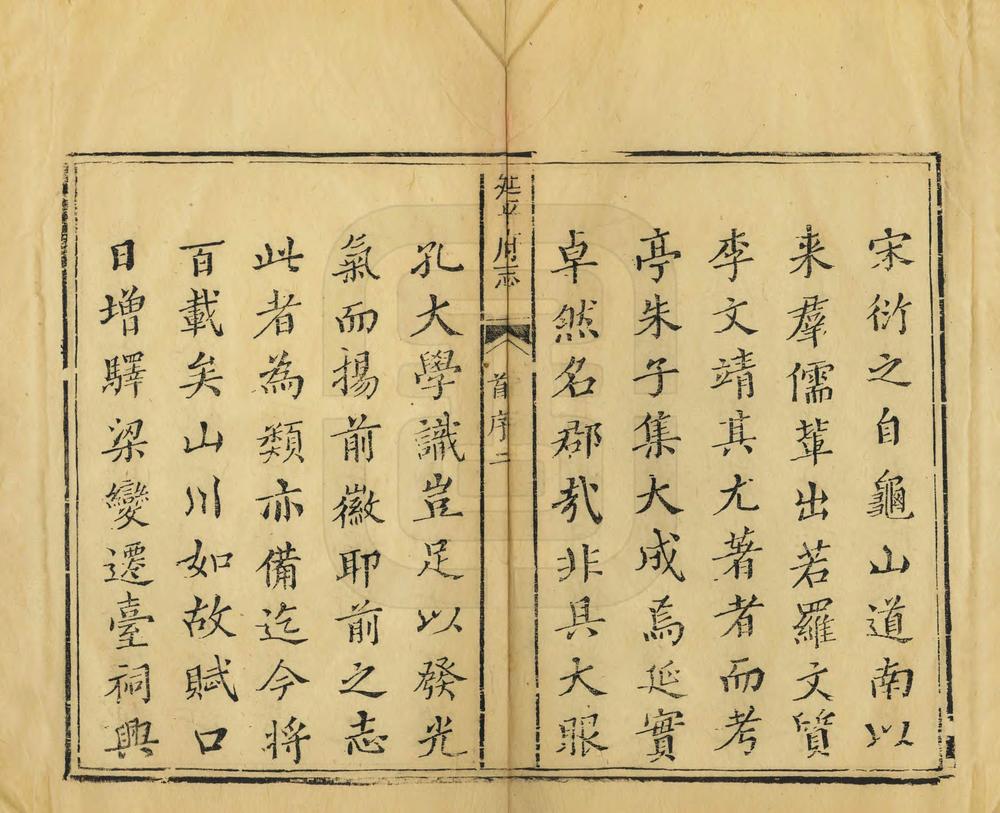 宋衍之自龜山道南以
来羣儒輩出若羅文質
李文靖其尤著者而考
亭朱子集大成焉延實
卓然名郡哉非具大眼
延平府志
首序二
孔大學識豈足以發光
氣而揚前徽耶前之志
此者為類亦備迄今將
百載矣山川如故賦口
日增驛梁變遷臺祠興